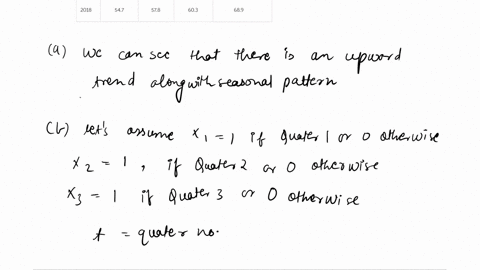 2018 54.7 57.8 60.3 68.9
(a) We can see that there is an upward
trend alongwith seasonal pattern
(b) let's assume x₁ = 1 if Quater 1 or 0 otherwise
x₂ = 1 , if Quater 2 or 0 otherwise
x₃ = 1 if Quater 3 or 0 otherwise
t = quater no.